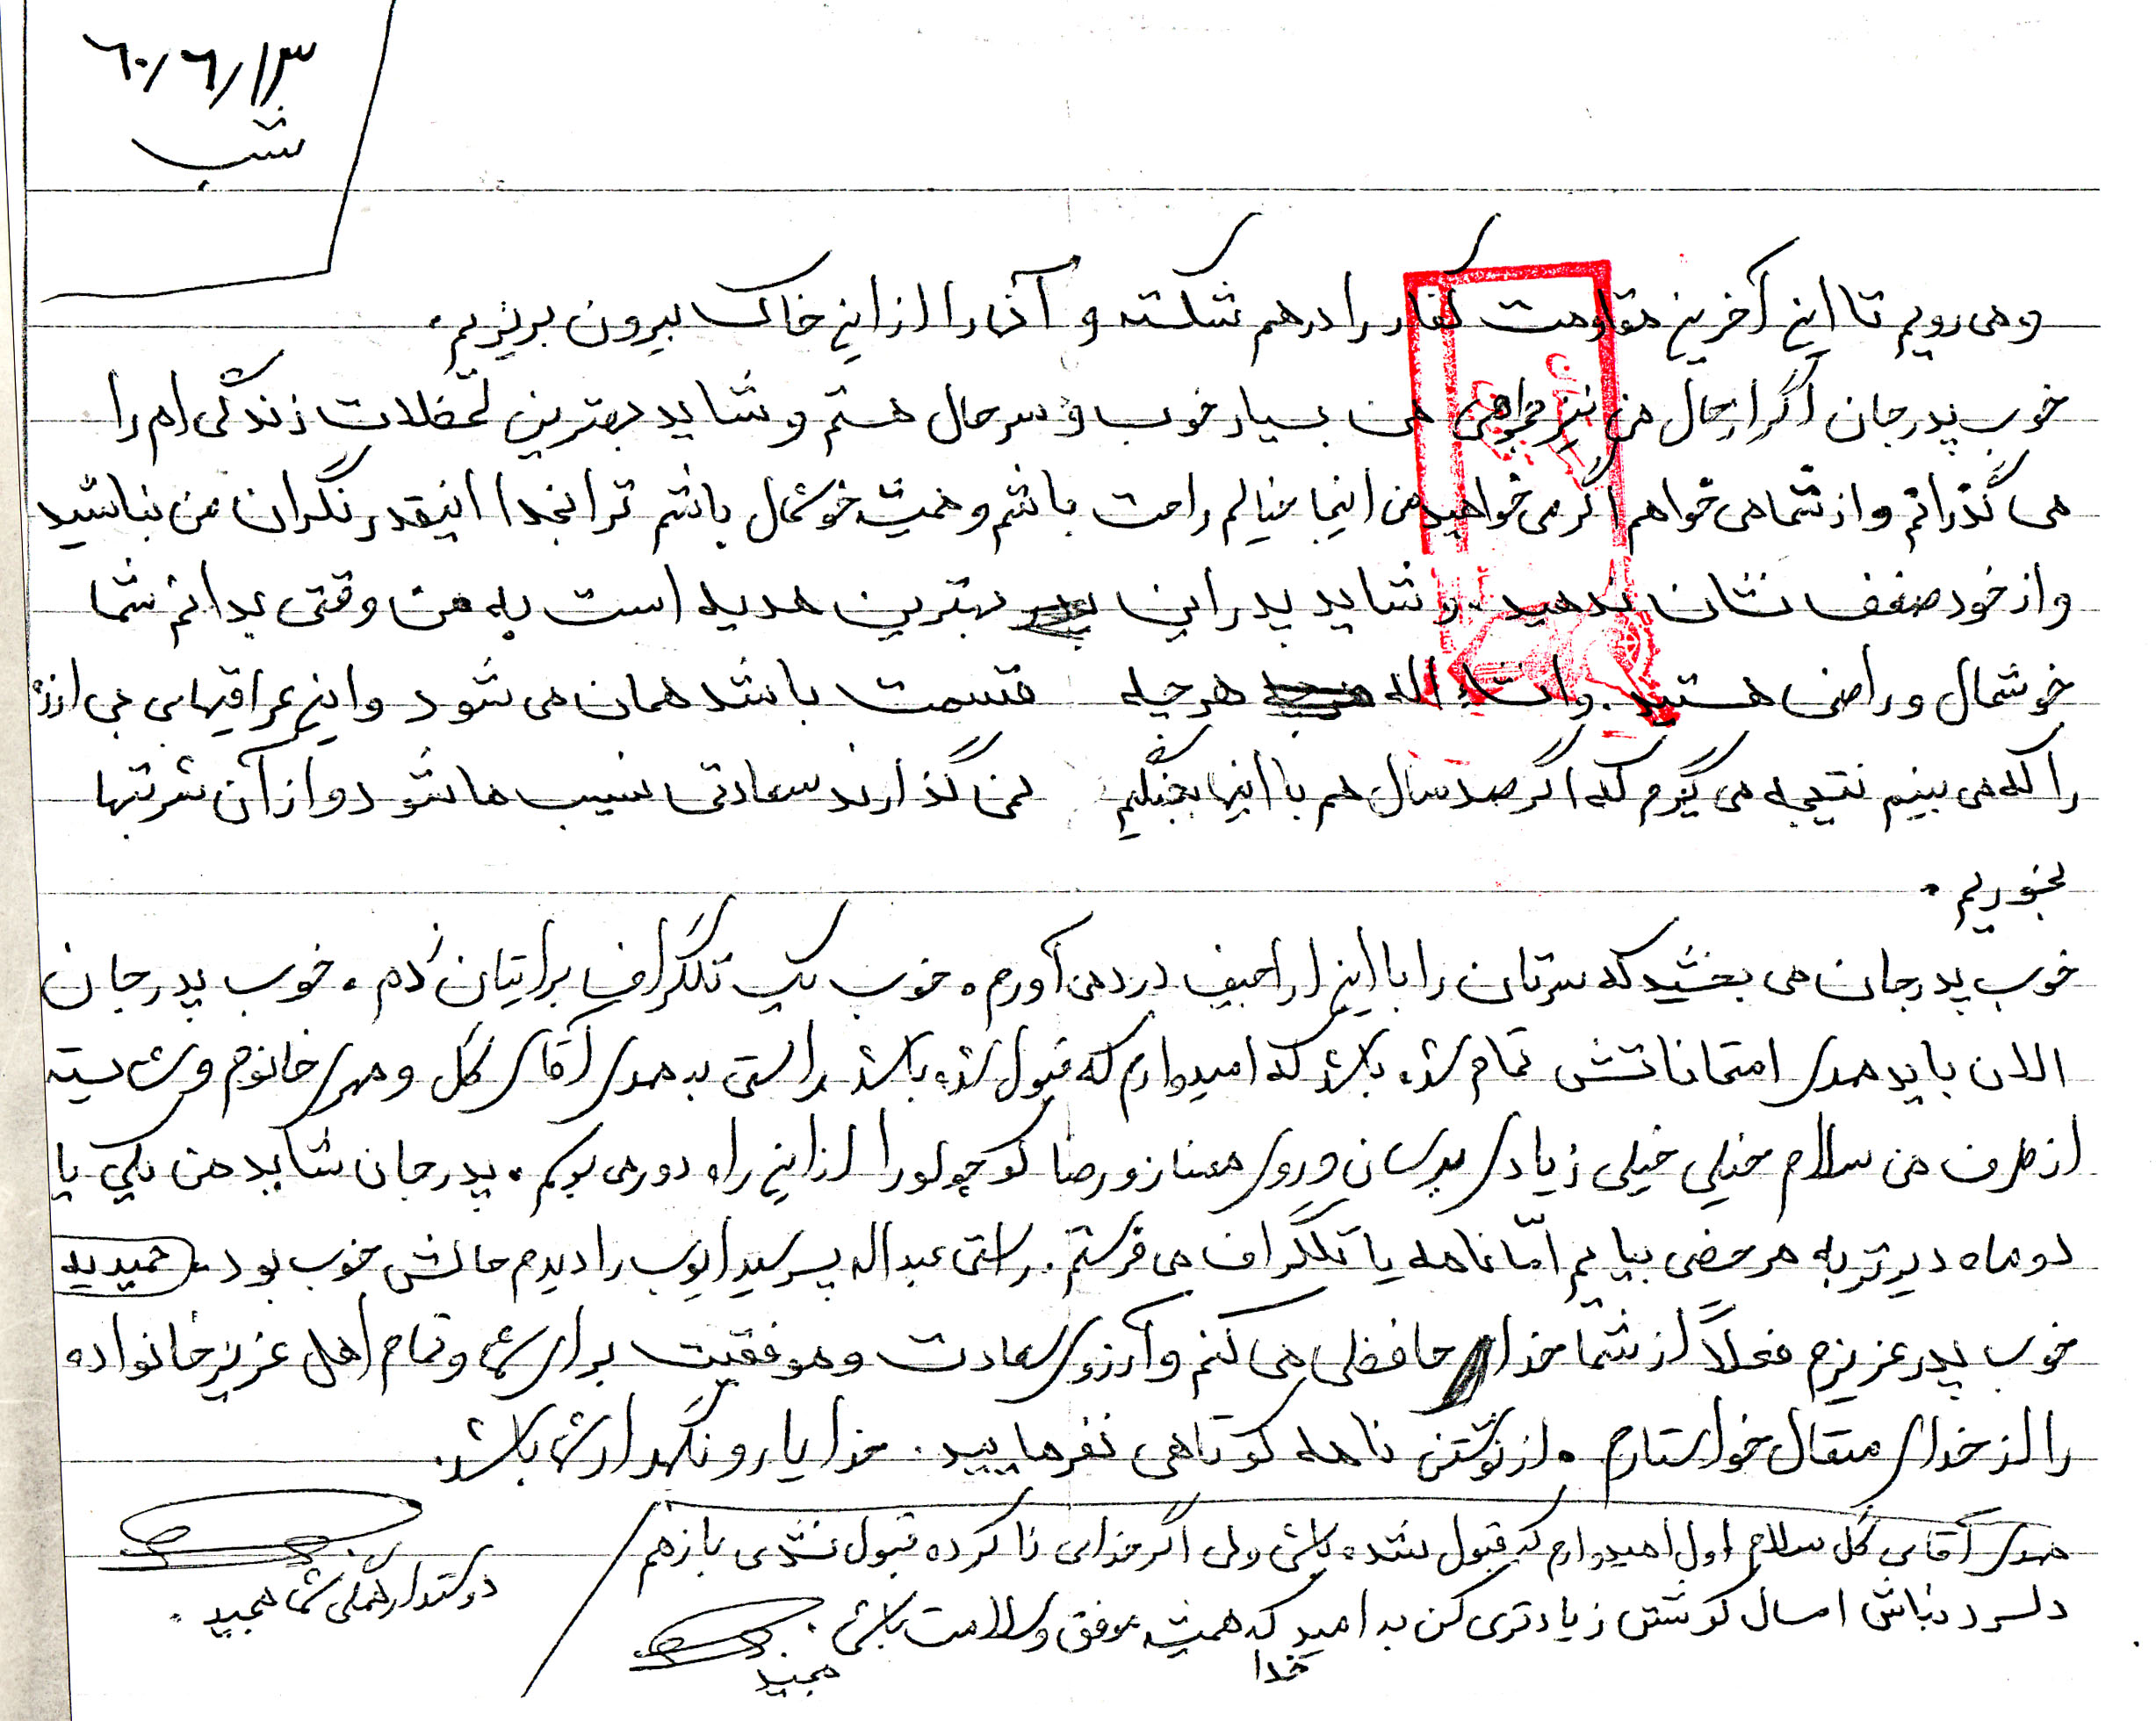 ۶۰/۶/۱۳
شب
و می رویم تا این آخرین مقاومت کفار را درهم شکسته و آنها را از این خاک بیرون بریزیم.
خوب پدر جان اگر از حال من نیز بخواهی من بسیار خوب و سرحال هستم و شاید بهترین لحظلات زندگی ام را
می گذرانم و از شما می خواهم اگر می خواهید من اینجا خیالم راحت باشم و همیشه خوشحال باشم ترا بخدا اینقدر نگران من نباشید
و از خود ضعف نشان ندهید. و شاید پدر این بهترین هدیه است به من وقتی بدانم شما
خوشحال و راضی هستید. وانشاء الله هرچه قسمت باشد همان می شود و این عراقیهایی
را که می بینم نتیجه می گیرم که اگر صد سال هم با اینها بجنگیم نمی گذارند سعادتی نسیب ما شود و از آن شربتها
بخوریم.
خوب پدر جان می بخشید که سرتان را با این اراجیف درد می آورم. خوب یک تلگراف برایتان زدم. خوب پدر جان
الان باید مهدی امتحاناتش تمام شده باشد که امیدوارم که قبول شده باشد راستی به مهدی آقای گل و مهری خانوم و
از طرف من سلام خیلی خیلی زیادی برسان و روی مهناز و رضا کوچولو را از این راه دور می بوسم. پدر جان شاید من یکی یا
دو ماه دیرتر به مرخصی بیایم امّا نامه یا تلگراف می فرستم. راستی عبداله پسر سید ایوب را دیدم حالش خوب بود. حمیدیه
خوب پدر عزیزم فعلاً از شما خدا حافظی می کنم و آرزوی سعادت و موفقیت برای شما و تمام اهل عزیز خانواده
را از خدای متعال خواستارم. از نوشتن نامه کوتاهی نفرمایید. خدا یار و نگهدارشما باشد.
دوستدار همگی شما مجید.
مهدی آقای گل سلام اول امیدوارم که قبول شده باشی ولی اگر خدای نا کرده قبول نشدی باز هم
دلسرد نباش امسال کوشش زیادتری کن به امید خدا که همیشه موفق و سلامت باشی.
مجید